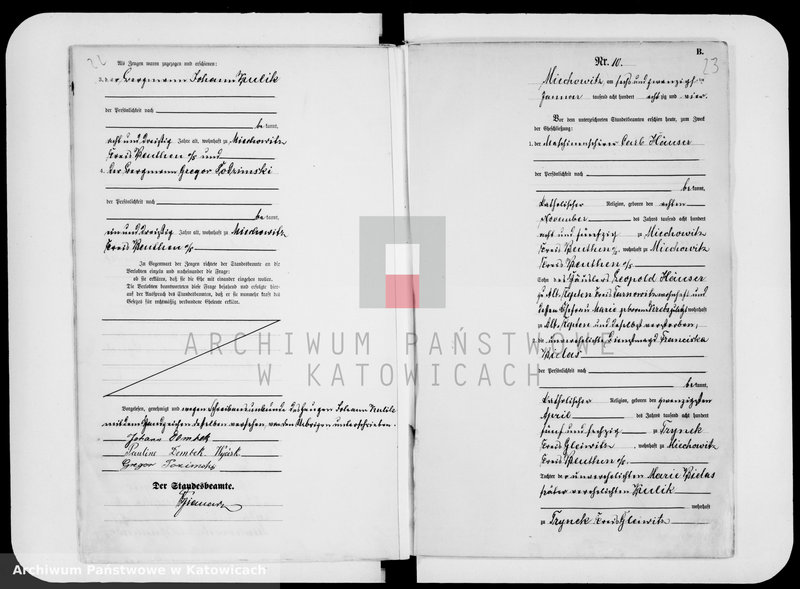 22
Als Zeugen waren zugezogen und erschienen:
3. der Bergmann Johann Kulik
der Persönlichkeit nach
be kannt,
acht und dreißig Jahre alt, wohnhaft zu Miechowitz
Kreis Beuthen o/s und
4. der Bergmann Gregor
der Persönlichkeit nach
be kannt,
ein und dreißig Jahre alt, wohnhaft zu Miechowitz
Kreis Beuthen o/s
In Gegenwart der Zeugen richtete der Standesbeamte an die
Verlobten einzeln und nacheinander die Frage:
ob sie erklären, daß sie die Ehe mit einander eingehen wollen.
Die Verlobten beantworteten diese Frage bejahend und erfolgte hier-
auf der Ausspruch des Standesbeamten, daß er sie nunmehr kraft des
Gesetzes für rechtmäßig verbundene Eheleute erkläre.
Vorgelesen, genehmigt und wegen Schreibensunkunde des Zeugen Johann Kulik
mit dem Handzeichen desselben versehen, von den Uebrigen unterschrieben.
Johann Dembek
Pauline Dembek
Gregor
Der Standesbeamte.
B.
23
Nr. 10.
Miechowitz, am sechs und zwanzigsten
Januar tausend acht hundert achtzig und vier.
Vor dem unterzeichneten Standesbeamten erschienen heute, zum Zweck
der Eheschließung:
1. der Maschinenschürer Carl Häuser
der Persönlichkeit nach
be kannt,
katholischer Religion, geboren den achten
November des Jahres tausend acht hundert
acht und fünfzig zu Miechowitz
Kreis Beuthen o/s, wohnhaft zu Miechowitz
Kreis Beuthen o/s.
Sohn des Häuslers Leopold Häuser
zu Alt Repten Kreis Tarnowitz wohnhaft und
dessen Ehefrau Marie geborenen wohnhaft
zu Alt Repten und daselbst verstorben;
2. die unverehelichte Dienstmagd Franciska
Bielas
der Persönlichkeit nach
be kannt,
katholischer Religion, geboren den zwanzigsten
April des Jahres tausend acht hundert
fünf und sechzig zu Trynek
Kreis Gleiwitz, wohnhaft zu Miechowitz
Kreis Beuthen o/s.
Tochter der unverehelichten Marie Bielas
später verehelichten Kulik
wohnhaft
zu Trynek Kreis Gleiwitz
ARCHIWUM PAŃSTWOWE
W KATOWICACH
Archiwum Państwowe w Katowicach